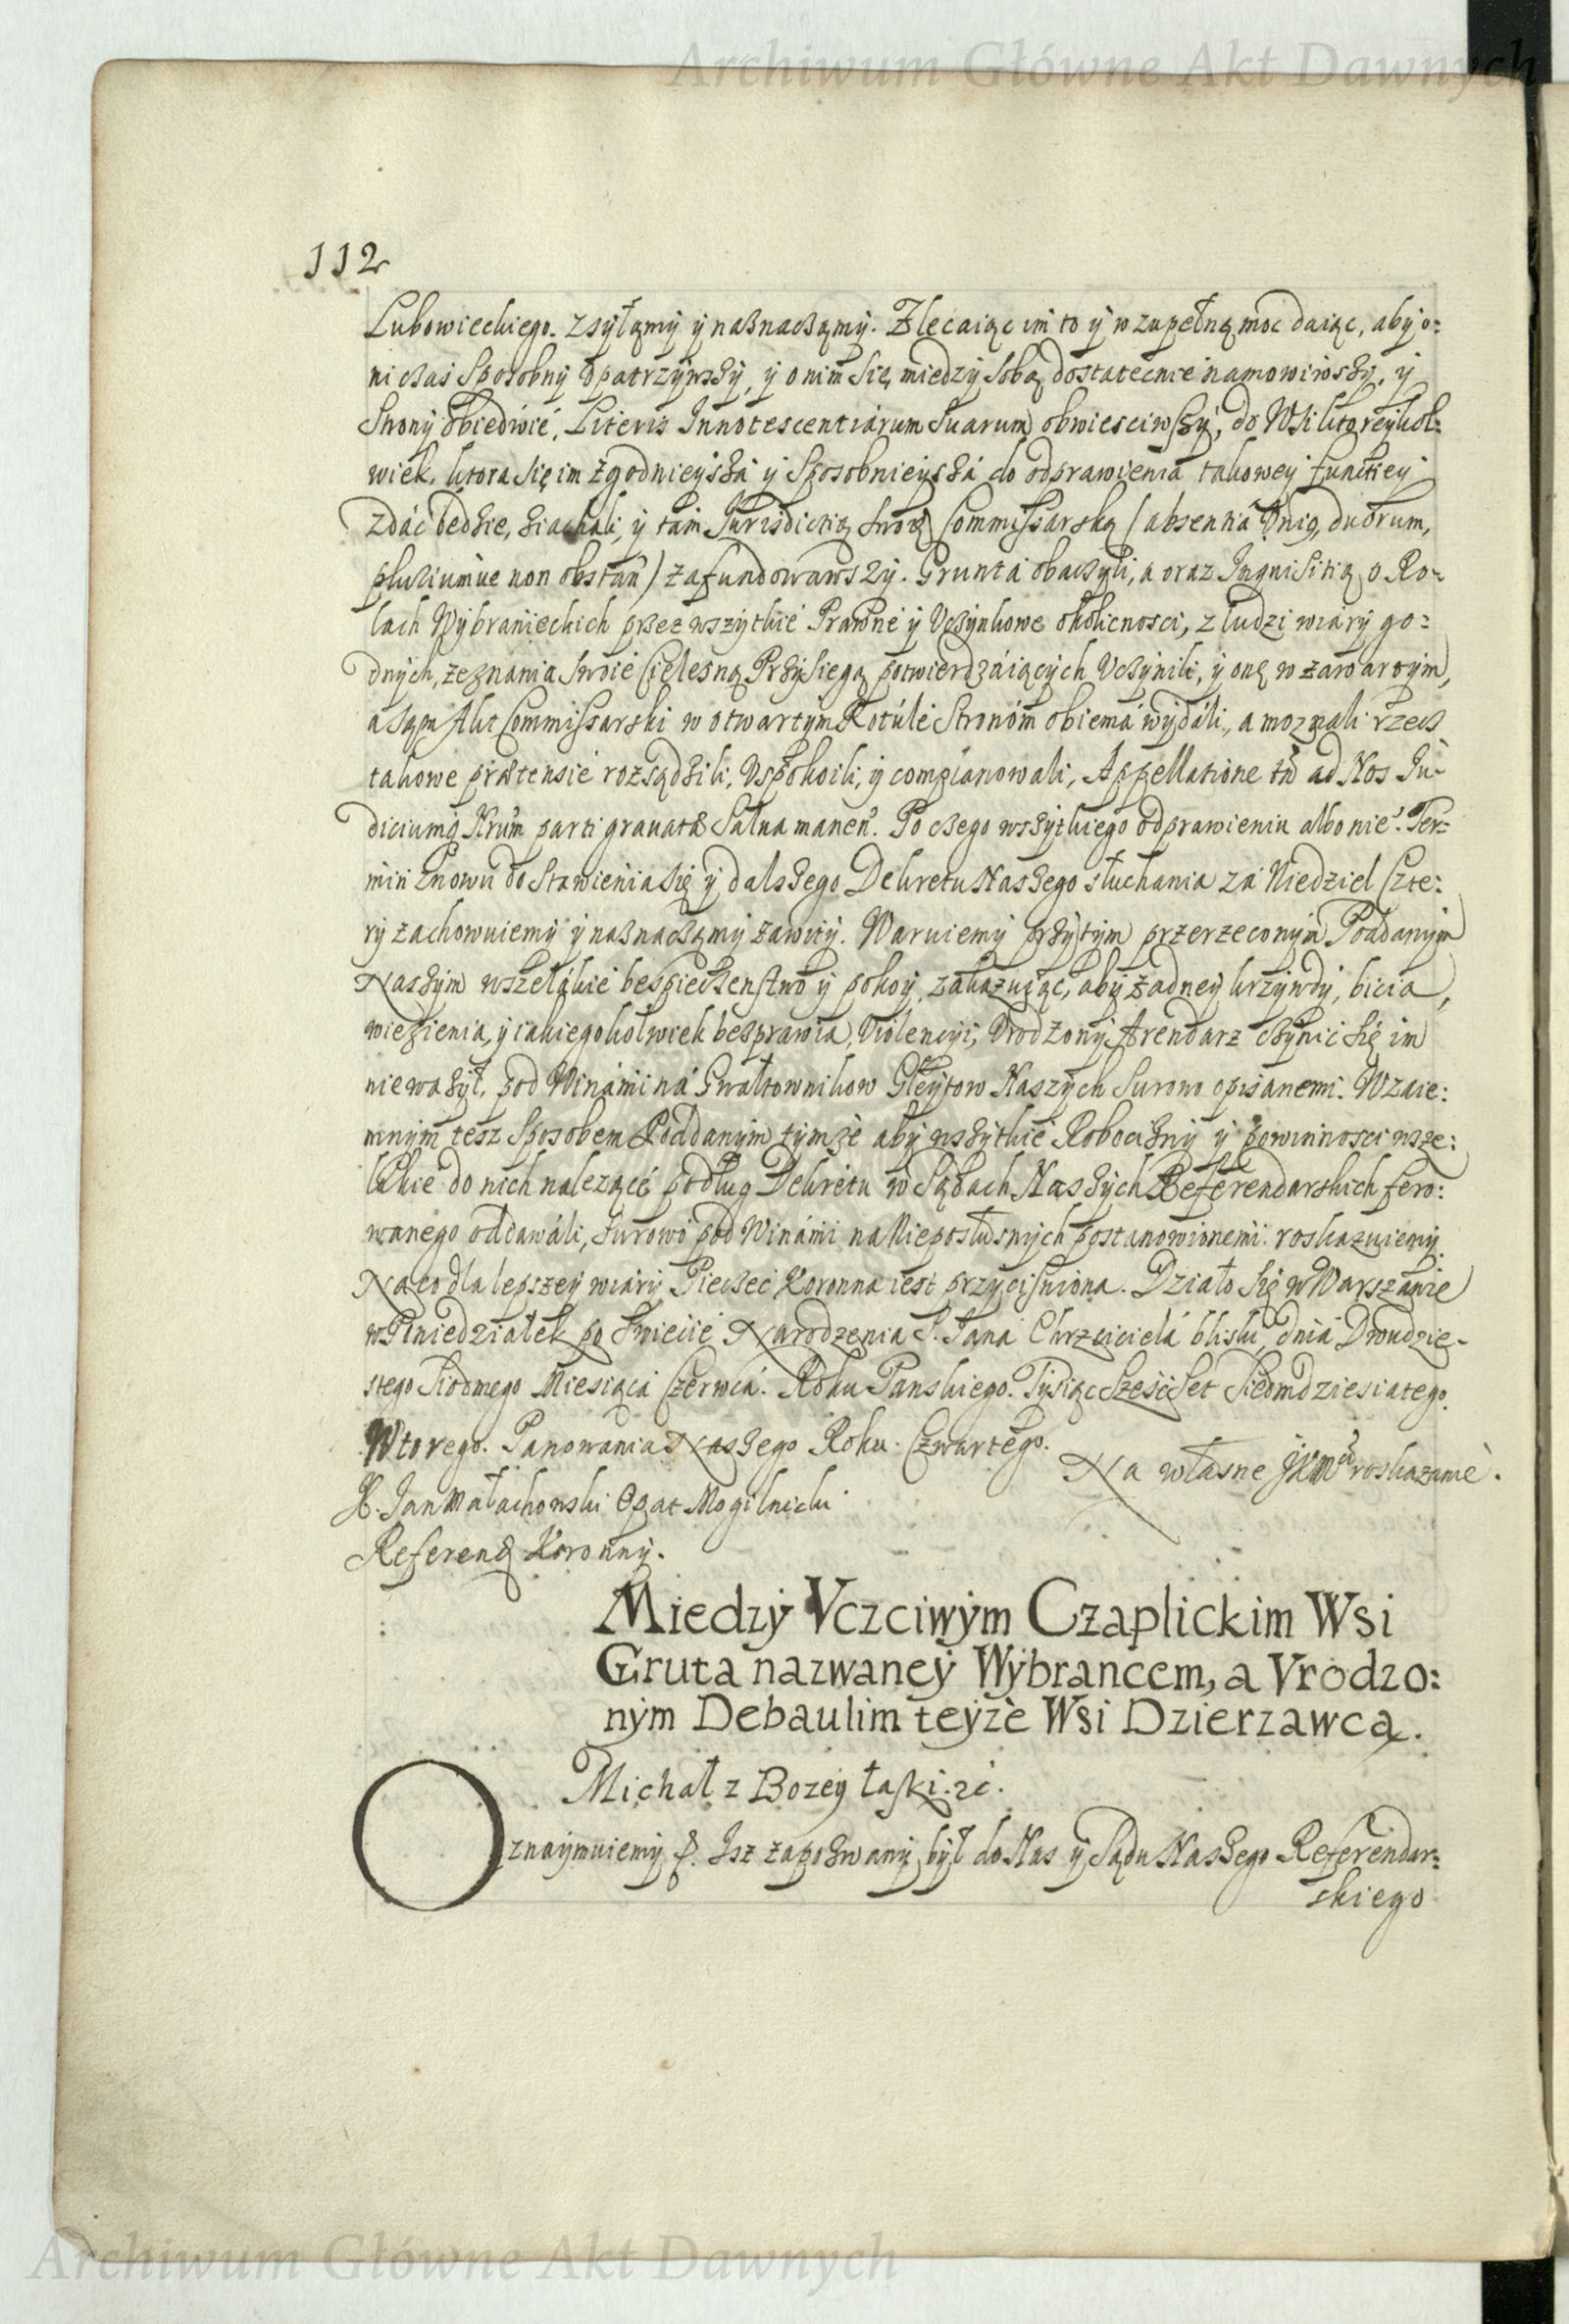 Archiwum Główne Akt Dawnych
112
Lubowieckiego. zsyłamy y naznaczamy. Zlecaiąc im to y w zupełną moc daiąc, aby o=
ni czas sposobny upatrzywszy, y o nim się między sobą dostatecnie namowiwszy, y
Strony obiedwie, Literis Innotescentiarum suarum obwiesciwszy, do Wsi ktoreykol=
wiek, ktora się im zgodnieysza y sposobnieysza do odprawienia takowey functiey
zdać będzie, ziachali, y tam Jurisdictią swoię Commissarską (absentia unig, duorum,
pluriumue non obstan) zafundowawszy. Grunta obaczyli, a oraz Inquisitią o Ro=
lach Wybranieckich przez wszytkie Prawne y Uczynkowe okolicnosci, z ludzi wiary go=
dnych, zeznania swoie Cielesną Przysięgą potwierdzaiących Uczynili, y onę w zawartym,
a sam Akt Commissarski w otwartym Rotule Stronom obiema wydali, a moznali rzecz
takowe prætensie rozsądzili, Uspokoili, y complanowali, Appellatione tn ad Nos Ju=
diciumq Nrum parti grauatæ Salua manen. Po czego wszytkiego odprawieniu albo nie. Ter=
min znowu do Stawienia się y dalszego Dekretu Naszego słuchania za Niedziel Czte:
ry zachowuiemy y naznaczamy zawity. Waruiemy przytym przerzeconym Poddanym
Naszym wszelakie bespieczenstwo y pokoy, zakazuiąc, aby żadney krzywdy, bicia,
więzienia, y iakiegokolwiek bezprawia, Violencyi, Urodzony Arendarz czynić się im
nie ważył, pod Winami na Gwałtownikow Gleytow Naszych Surowo opisanemi. Wzaie:
mnym tesz Sposobem Poddanym tymze aby wszytkie Robocizny y powinnosci wsze:
lakie do nich nalezące podług Dekretu w Sądach Naszych Referendarskich fero:
wanego oddawali, surowo pod Winami na Nieposłusnych postanowionemi roskazuiemy.
Na co dla lepszey wiary Pieczęć Koronna iest przycisniona. Działo się w Warszawie
w Poniedziałek po Swięcie Narodzenia S. Jana Chrzciciela blisku, dnia Dwudzie=
stego Siodmego Miesiąca Czerwca. Roku Panskiego. Tysiąc Sześć Set Siedmdziesiątego
Wtorego. Panowania Naszego Roku Czwartego.
Na własne JKMci roskazanie.
X. Jan Małachowski Opat Mogilnicki
Referend Koronny.
Miedzy Vczciwym Czaplickim Wsi
Gruta nazwaney Wybrancem, a Vrodzo:
nym Debaulim teyze Wsi Dzierzawcą.
Michał z Bozey łaski. &c.
Oznaymuiemy &. Isz zapozwany był do Nas y Sądu Naszego Referendar=
skiego
Archiwum Główne Akt Dawnych